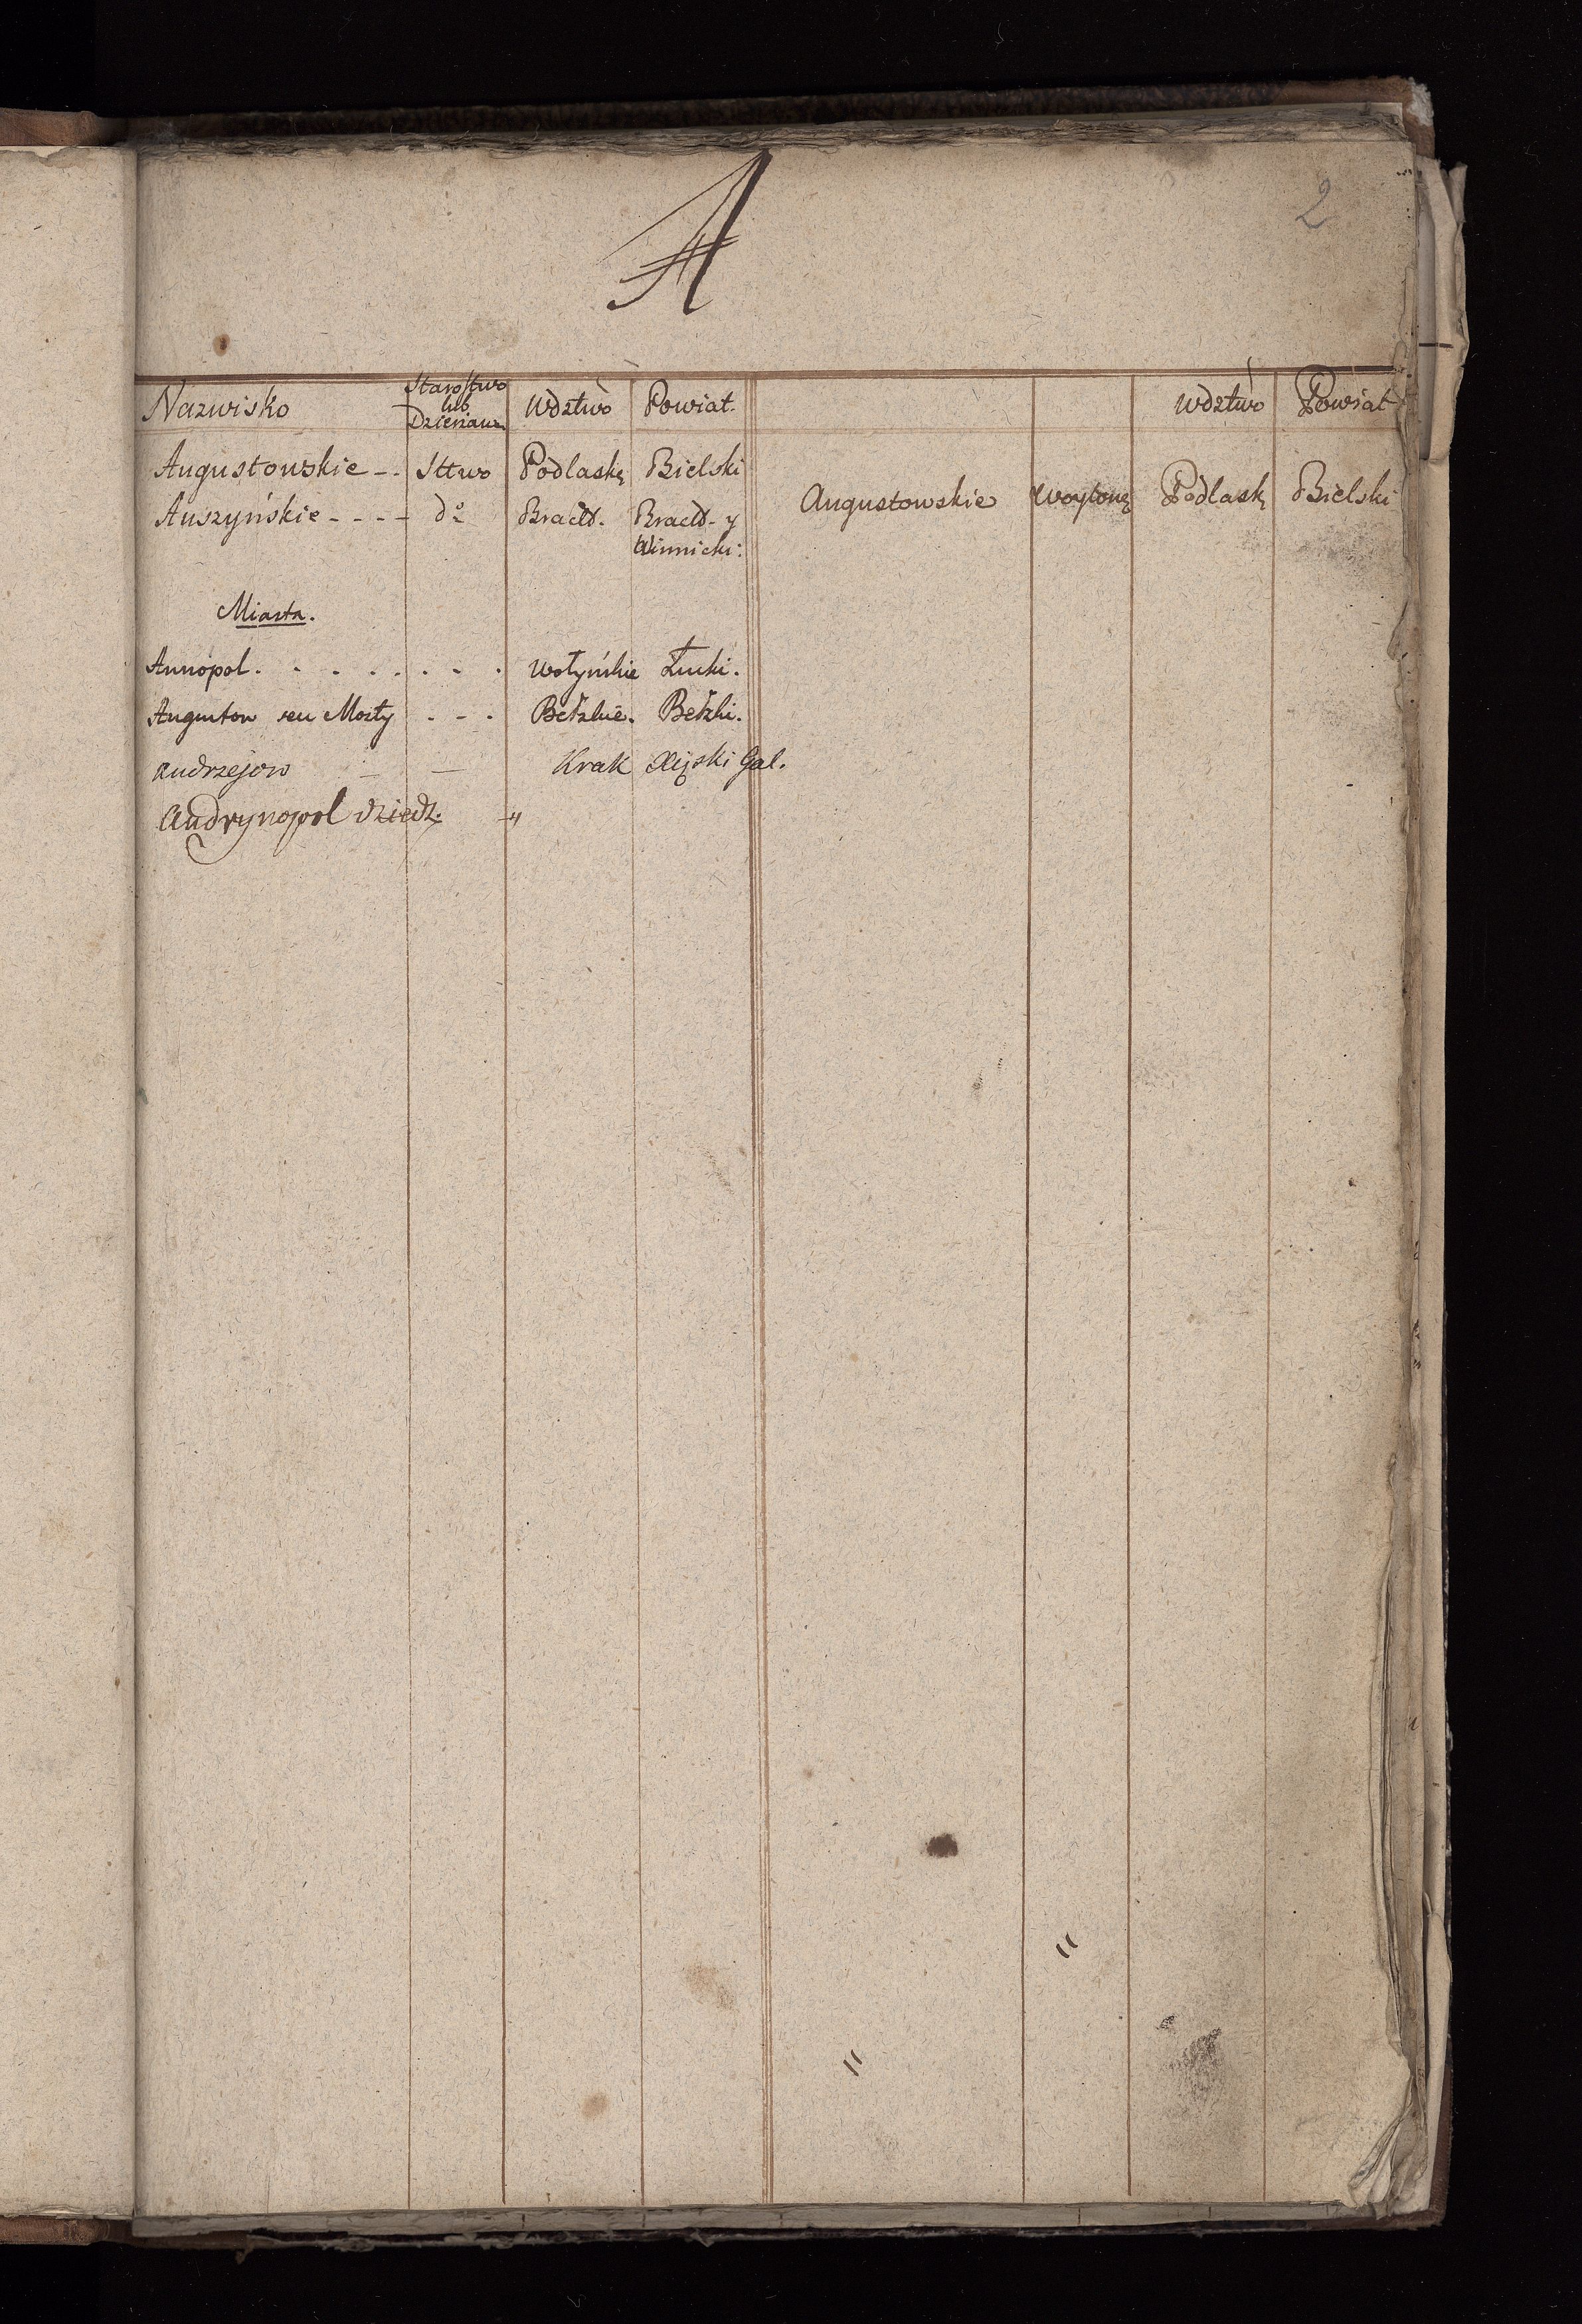 A
2
Nazwisko Starostwo lub Dzierżaw. Wdztwo Powiat. Wdztwo Powiat
Augustowskie -- Sttwo Podlaskę Bielski
Augustowskie Woytowę Podlaskę Bielski
Auszyńskie ---- do Bracld. Bracld. y
Winnicki:
Miasta.
Annopol. . . . . . . . Wołyńskie Łucki.
Augustow seu Mosty . - . Bełzkie. Bełzki.
Andrzejow — — Krak Xiąski Gal.
Andrynopol dziedz. -"
"
"